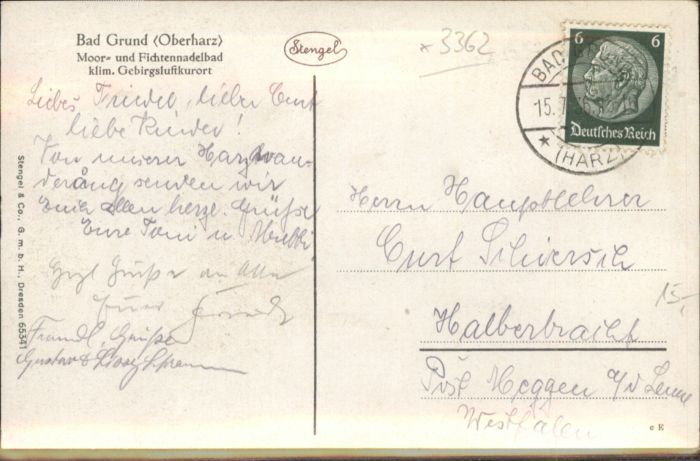 Bad Grund (Oberharz)
Moor- und Fichtennadelbad
klim. Gebirgsluftkurort
Stengel
* 3362
6 6
Deutsches Reich
BAD GRUND
15.
(HARZ)
Liebes Friedel, lieber Curt
liebe Kinder!
Von unserer Harzwan-
derung senden wir
Euch allen herzl. Grüße
Eure Toni u.
Herzl Grüße an Alle
Euer
Freundl. Grüße
Gustav &
Herrn Hauptlehrer
Curt
Halberbracht
Post Meggen a/d Lenne
Westfalen
15,
Stengel & Co., G. m. b. H., Dresden 65341
c E